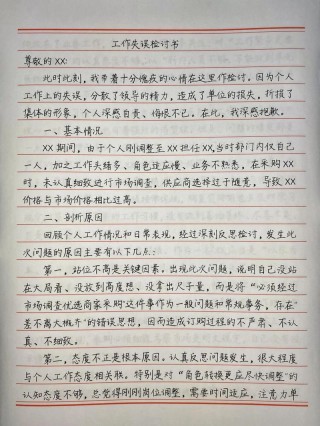 工作失误检讨书
尊敬的XX:
此时此刻,我带着十分愧疚的心情在这里作检讨。因为个人
工作上的失误,分散了领导的精力,造成了单位的损失,折损了
集体的形象,个人深感自责、悔恨不已。在此,我深感抱歉。
一、基本情况
XX期间,由于个人刚调整至XX担任XX,当时部门内仅自己
一人,加之工作头绪多、角色适应慢、业务不熟悉,在采购XX
时,未认真细致进行市场调查,供应商选择过于随意,导致XX
价格与市场价格相比过高。
二、剖析原因
回顾个人工作情况和日常表现,经过深刻反思检讨,发生此
次问题的原因主要有以下几点:
第一,站位不高是关键因素。出现此次问题,说明自己没站
在大局看、没放到高度想、没拿出尺子量,而是将“必须经过
市场调查优选商家采购”这件事作为一般问题和常规事务,存在“
差不离大概齐”的错误思想,因而造成订购过程的不严肃、不认
真、不细致。
第二,态度不正是根本原因。认真反思问题发生,很大程度
与个人工作态度相关联。特别是对“角色转换更应尽快调整”的
认知态度不够,总觉得刚刚岗位调整,需要时间适应,注意力单